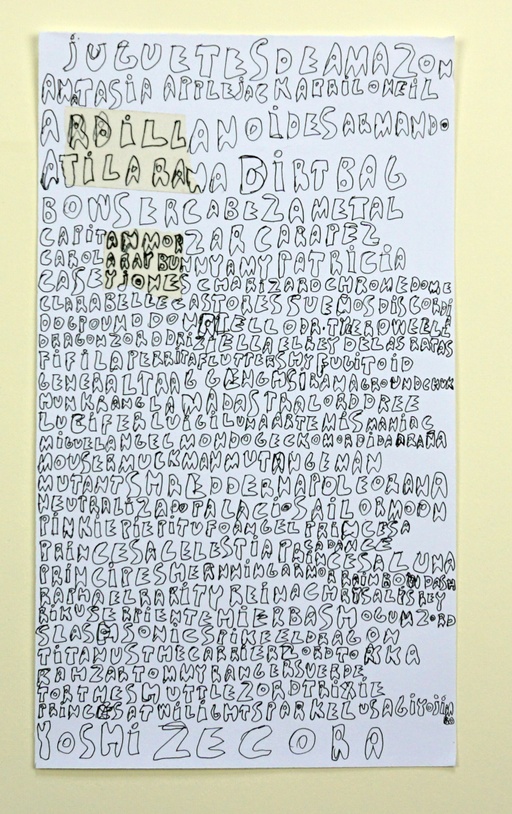 jUGUETESDEAMAZON
ANTASIA APPLEjACKAPRILONEiL
ARDiLLANOiDESARMANDO
ATiLARANA DiRTBAG
BOWSERCABEZAMETAL
CAPiTANMORZAR CARAPEZ
CAROLARAPBUNNYAMYPATRiCiA
CASEYjONES CHARiZARDCHROMEDOME
CLARABELLECASTORESSUEMOSDiSCORDi
DOGPOUNDDON
FiFiLAPERRiTAFLUTTERSHYFUGiTOiD
GENERALTRAAG GENGHSiRANAGROUNDCHUK
HUNKRANGLAMADASTRALORDDREE
LUCiFERLUiGiLUNAARTEMiSMANiAC
MiGUELANGELMONDOGECKOMORDiDAARAÑA
MOUSERMUCKMANMUTANGEMAN
MUTANTSHREDDERNAPOLEORANA
NEUTRALiZADOPALACiOSAiLORMOON
PiNKiEPiEPiTUFOANGELPRiNCESA
PRiNCESACELESTiAPRiNCESALUNA
PRiNCiPESHERNNiNGARMORRAiNBOWDASH
RAPHAELRARiTYREiNACHRYSALiSREY
RiKUSERPiENTEHiERBASHOGUNZORD
SLASHSONiCSPiKEELDRAGON
TiTANUSTHECARRiERZORDTOKKA
RAHZARTOMMYRANGERSVERDE
TORTHESHUTTLEZORDTRiXiE
PRiNCESATWiLiGHTSPARKELUSAGiYOjiMBO
YOSHi ZECORA